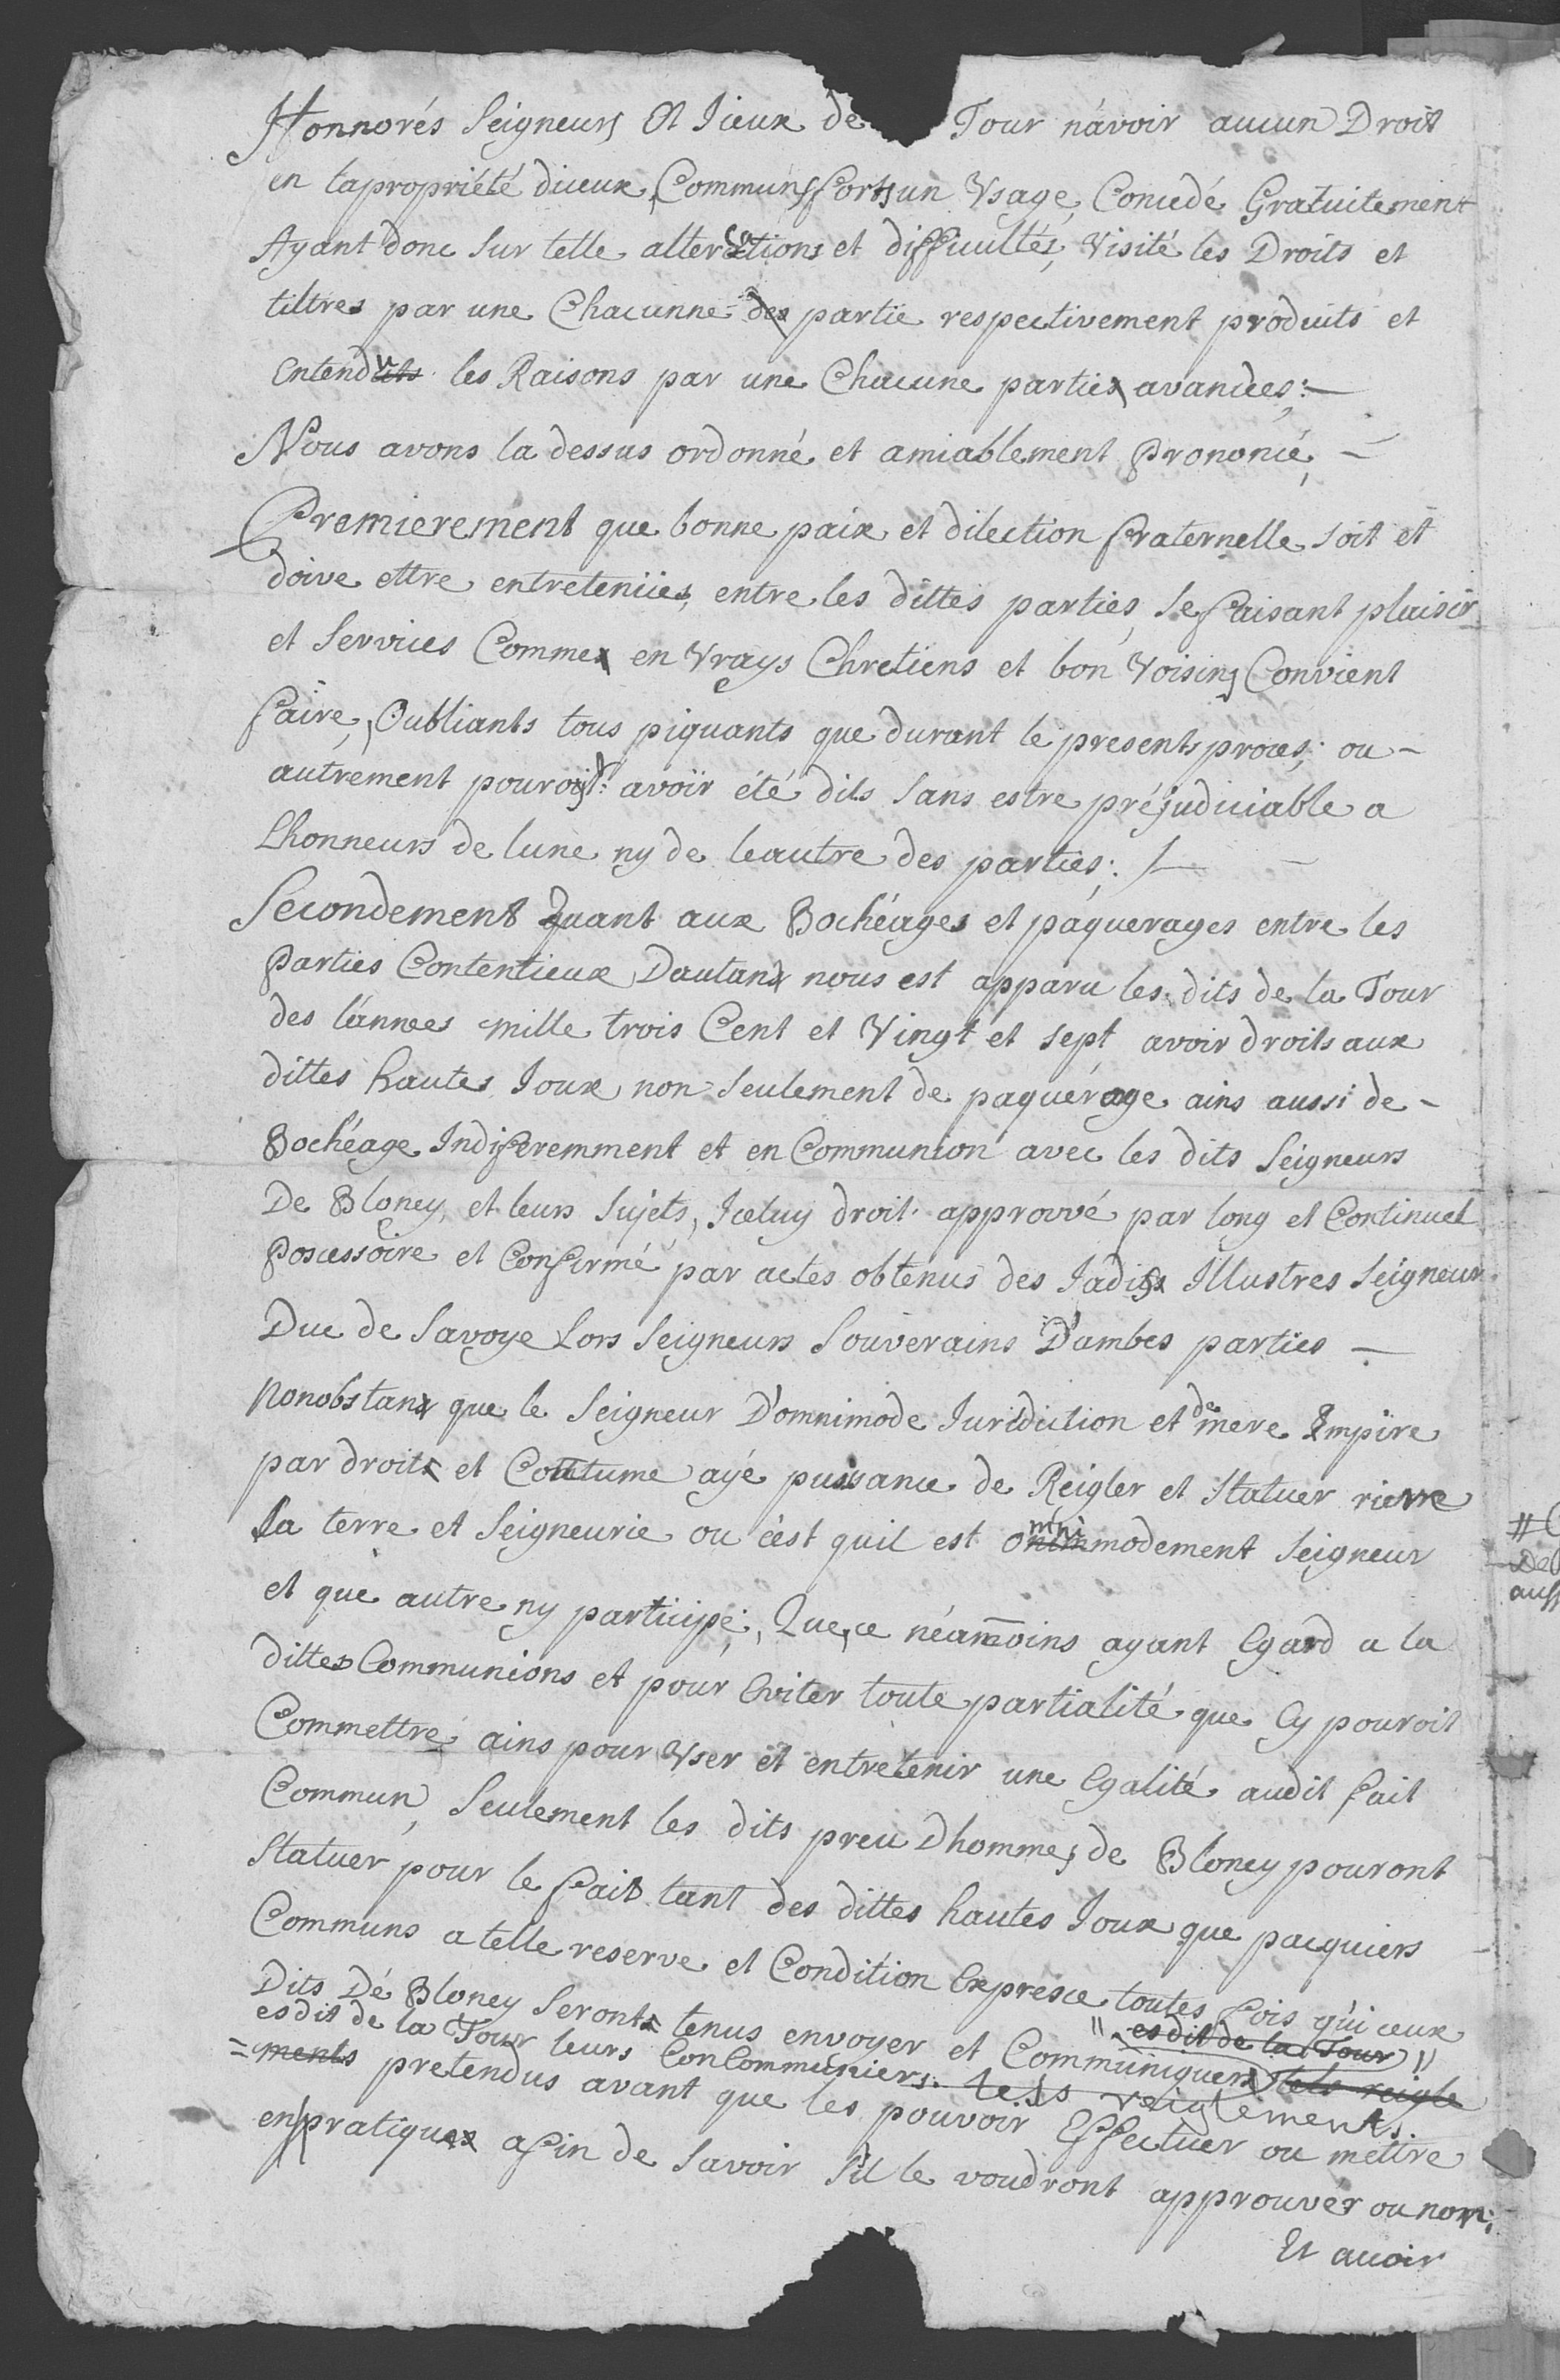 Honnorés Seigneurs Et Iceux de Tour n'avoir aucun Droit
en la propriété diceux, Communs fors un Usage, Concedé Gratuitement
Ayant donc sur telle altercations et difficultés, Visité les Droits et
tiltres par une Chacunne des partie respectivement produits et
Entendu les Raisons par une Chacune parties avancées;—
Nous avons la dessus ordonné et amiablement Prononcé, —
Premierement que bonne paix et dilection fraternelle soit et
doive ettre entretenües, entre les dittes parties, se faisant plaisir
et services Comme en Vrays Chretiens et bon Voisins Convient
faire, Oubliants tous piquants que durant le presents proces; ou –
autrement pouroit avoir été dits sans estre préjudiciable a
Lhonneurs de lune ny de leautre des parties; /—
Secondement Quant aux Bochéages et pâquerages entre les
Parties Contentieux, Dautant nous est apparu les dits de la Tour
des l'annees mille trois Cent et Vingt et sept avoir droits aux
dittes hautes Ioux, non seulement de paquérage ains aussi de –
Bochéage Indiferemment et en Communion avec les dits Seigneurs
De Bloney, et leurs Sujets, Iceluy droit approvvé par long et Continuel
Poscessoire et Confirmé par actes obtenus des Iadis Illustres Seigneur
Duc de Savoye Lors Seigneurs Souverains D'ambes parties —
Nonobstant que le Seigneur D'omnimode Juridiction et de mere Impire
par droits et Coutume ayé puissance de Reigler et Statuer rierre
Sa terre et Seigneurie ou c'est quil est omnimodement Seigneur
et que autre ny participe, Que, ce néamoins ayant Egard a la
dittes Communions et pour Eviter toute partialité que Cy pouroit
Commettre ains pour Vser et entretenir une Egalité audit fait
Commun, Seulement les dits preu Dhommes de Bloney pouront
Statuer pour le fait tant des dittes hautes Ioux que pacquiers
Communs a telle reserve et Condition Expresce toutes fois qui ceux
Dits De Bloney Seront tenus envoyer et Communiquer " es dit de la Tour " tels reigle
es dit de la Tour leurs ConCommuniers. tels reiglements.
=ments pretendus avant que les pouvoir Effectuer ou mettre
en pratique afin de Savoir S'il le voudront approuver ou non;
Et auoir
De
auss